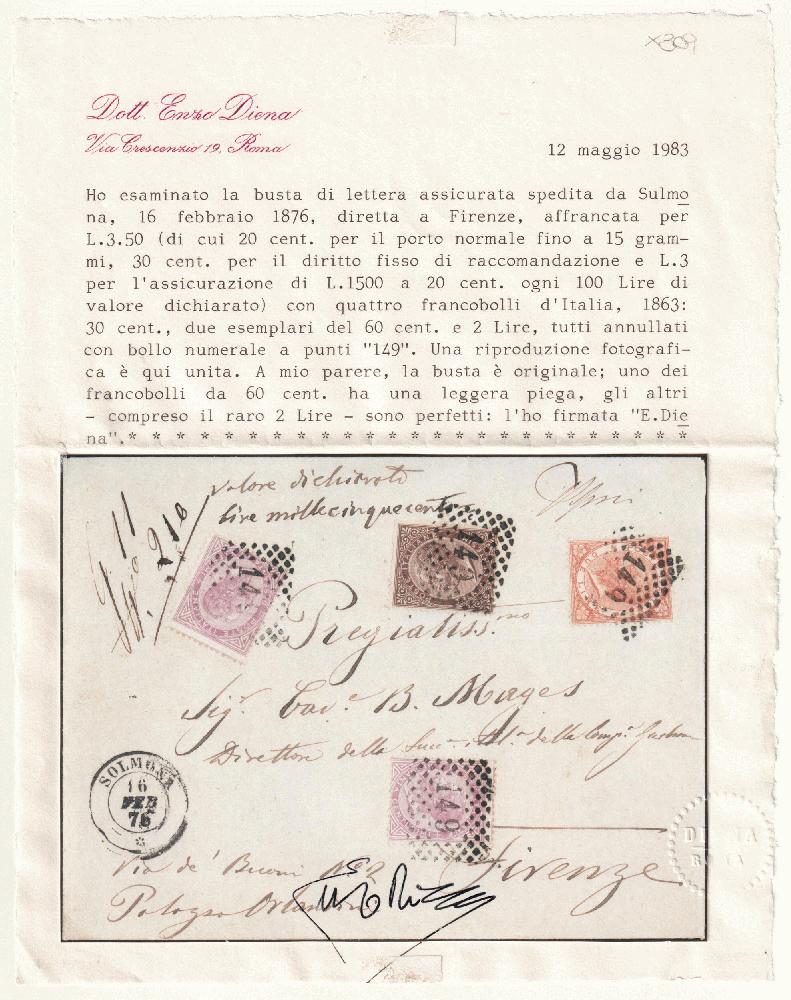 x309
Dott. Enzo Diena
Via Crescenzio 19, Roma
12 maggio 1983
Ho esaminato la busta di lettera assicurata spedita da Sulmo
na, 16 febbraio 1876, diretta a Firenze, affrancata per
L.3.50 (di cui 20 cent. per il porto normale fino a 15 gram-
mi, 30 cent. per il diritto fisso di raccomandazione e L.3
per l'assicurazione di L.1500 a 20 cent. ogni 100 Lire di
valore dichiarato) con quattro francobolli d'Italia, 1863:
30 cent., due esemplari del 60 cent. e 2 Lire, tutti annullati
con bollo numerale a punti "149". Una riproduzione fotografi-
ca è qui unita. A mio parere, la busta è originale; uno dei
francobolli da 60 cent. ha una leggera piega, gli altri
- compreso il raro 2 Lire - sono perfetti: l'ho firmata "E.Die
na".* * * * * * * * * * * * * * * * * * * * * * * * *
valore dichiarato
lire millecinquecento
11
210
149
149
149
Pregiatiss.mo
Sig.r Cav.e B. Mayes
Direttore della della Comp.
149
SOLMONA
16
FEB
76
DIENA
ROMA
Via de' Buoni No 2
Firenze
Palazzo Orlandini